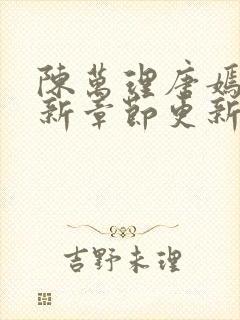 陳萬理唐嫣
新章節更新
吉野未理